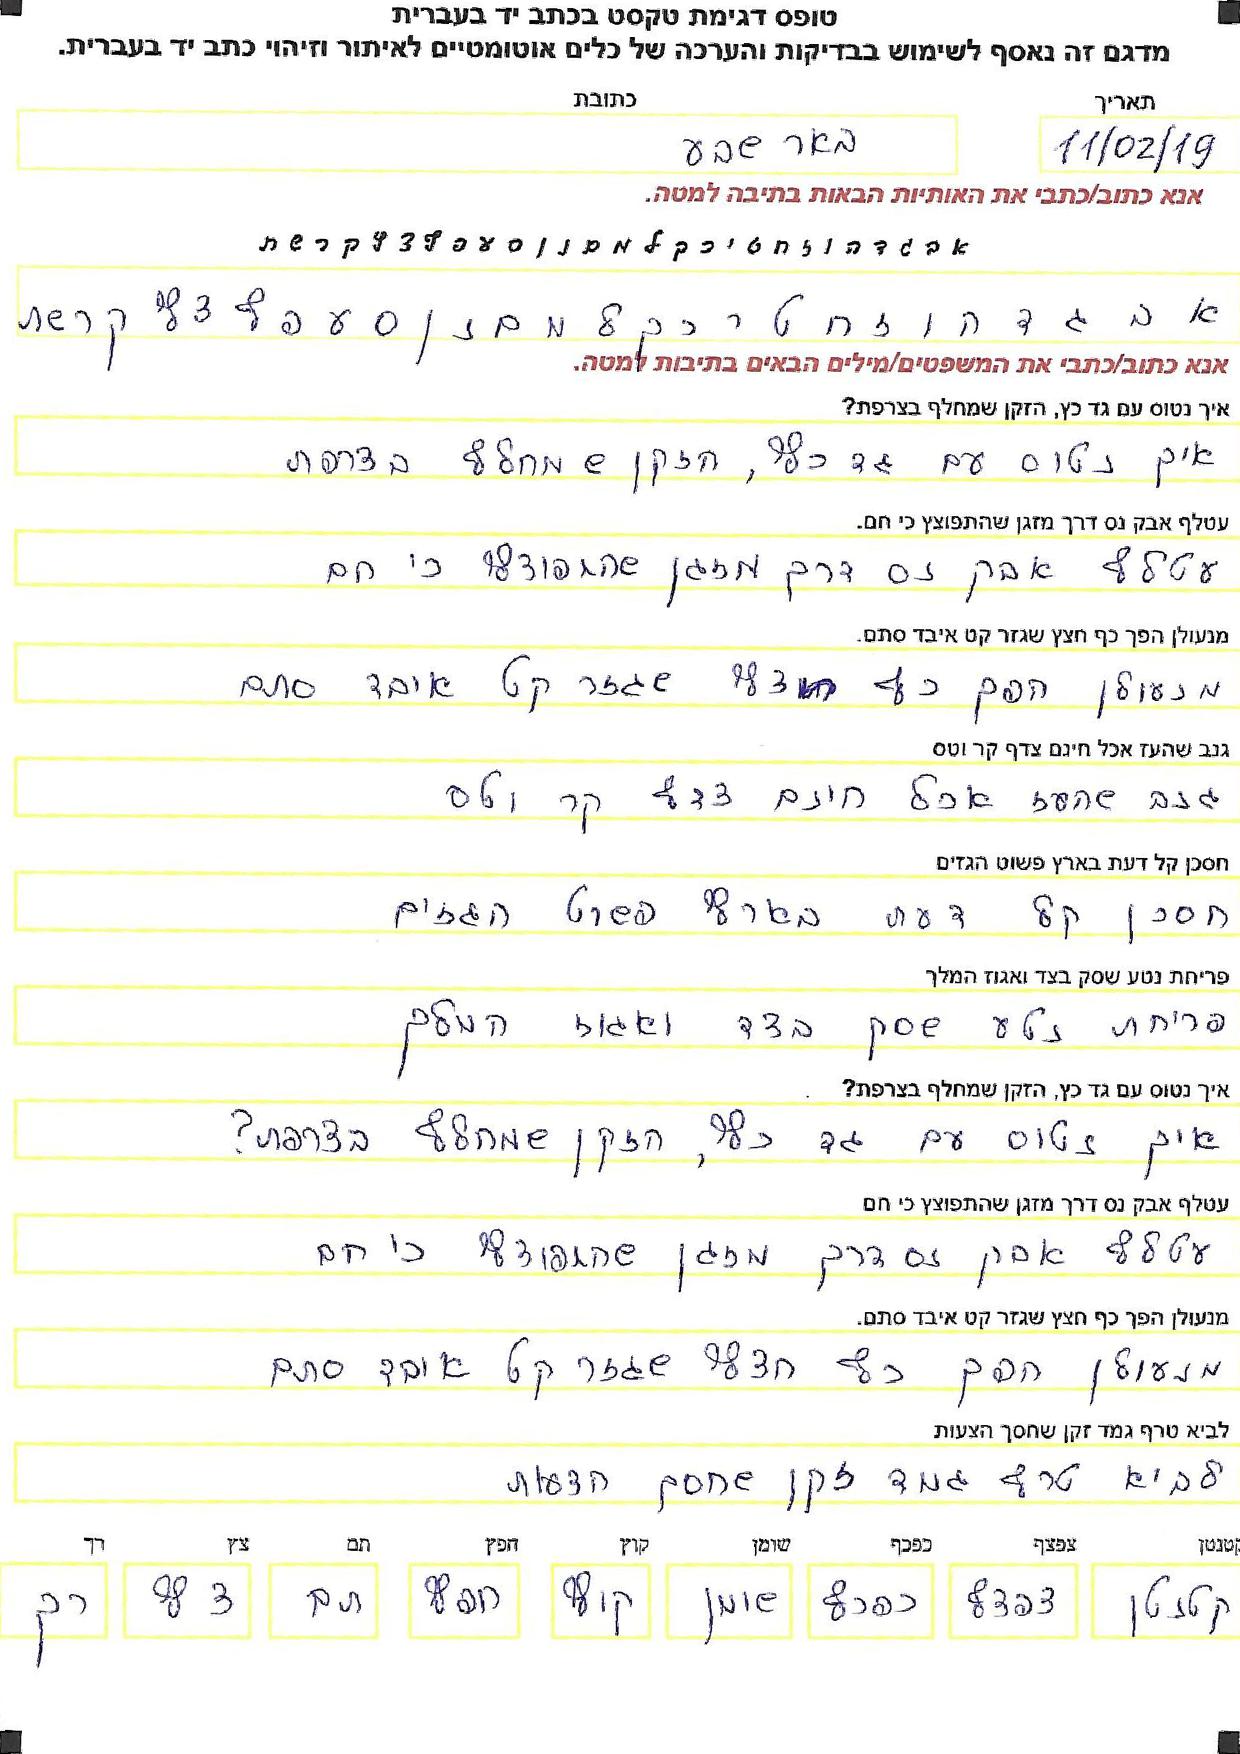 טופס דגימת טקסט בכתב יד בעברית
מדגם זה נאסף לשימוש בבדיקות והערכה של כלים אוטומטיים לאיתור וזיהוי כתב יד בעברית.
תאריך כתובת
11/02/19 באר שבע
אנא כתוב/כתבי את האותיות הבאות בתיבה למטה.
א ב ג ד ה ו ז ח ט י כ ך ל מ ם נ ן ס ע פ ף צ ץ ק ר ש ת
א ב ג ד ה ו ז ח ט י כ ך ל מ ם נ ן ס ע פ ף צ ץ ק ר ש ת
אנא כתוב/כתבי את המשפטים/מילים הבאים בתיבות למטה.
איך נטוס עם גד כץ, הזקן שמחלף בצרפת?
איך נטוס עם גד כץ, הזקן שמחלף בצרפת
עטלף אבק נס דרך מזגן שהתפוצץ כי חם.
עטלף אבק נס דרך מזגן שהתפוצץ כי חם
מנעולן הפך כף חצץ שגזר קט איבד סתם.
מנעולן הפך כף חצץ שגזר קט איבד סתם
גנב שהעז אכל חינם צדף קר וטס
גנב שהעז אכל חינם צדף קר וטס
חסכן קל דעת בארץ פשוט הגזים
חסכן קל דעת בארץ פשוט הגזים
פריחת נטע שסק בצד ואגוז המלך
פריחת נטע שסק בצד ואגוז המלך
איך נטוס עם גד כץ, הזקן שמחלף בצרפת?
איך נטוס עם גד כץ, הזקן שמחלף בצרפת?
עטלף אבק נס דרך מזגן שהתפוצץ כי חם
עטלף אבק נס דרך מזגן שהתפוצץ כי חם
מנעולן הפך כף חצץ שגזר קט איבד סתם.
מנעולן הפך כף חצץ שגזר קט איבד סתם
לביא טרף גמד זקן שחסך הצעות
לביא טרף גמד זקן שחסך הצעות
קטנטן צפצף כפכף שומן קוץ חפץ תם צץ רך
קטנטן צפצף כפכף שומן קוץ חפץ תם צץ רך